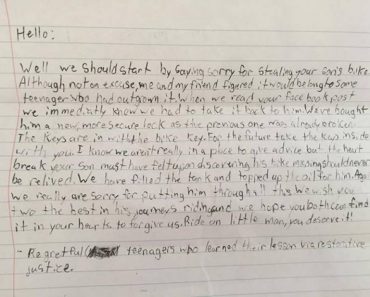 Hello:
Well we should start by saying sorry for stealing your son's bike.
Although not an excuse, me and my friend figured it would belong to some
teenager who had outgrown it. When we read your facebook post
we immidiatly know we had to take it back to him. We've bought
him a new, more secure lock as the previous one was already eroded.
The Keys are in with the bike key. For the future take the keys inside
with you. I know we aren't really in a place to give advice but the heart
break your son must have felt upon discovering his bike missing should never
be relived. We have filled the tank and topped up the oil for him. Again
we really are sorry for putting him through!! this We wish you
two the best in his journeys riding and we hope you both can find
it in your hearts to forgive us. Ride on little man, you deserve it!
- Regretful teenagers who learned their lesson via restorative
justice.